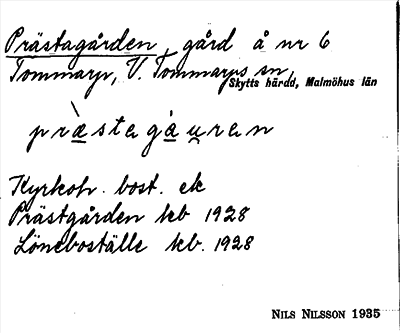 Prästagården, gård å nr 6
Tommarp, V. Tommarps sn,
Skytts härad, Malmöhus län
præ̀stagau̯ran
Kyrkoh. bost. ek
Prästgården kb 1928
Löneboställe kb. 1928
NILS NILSSON 1935